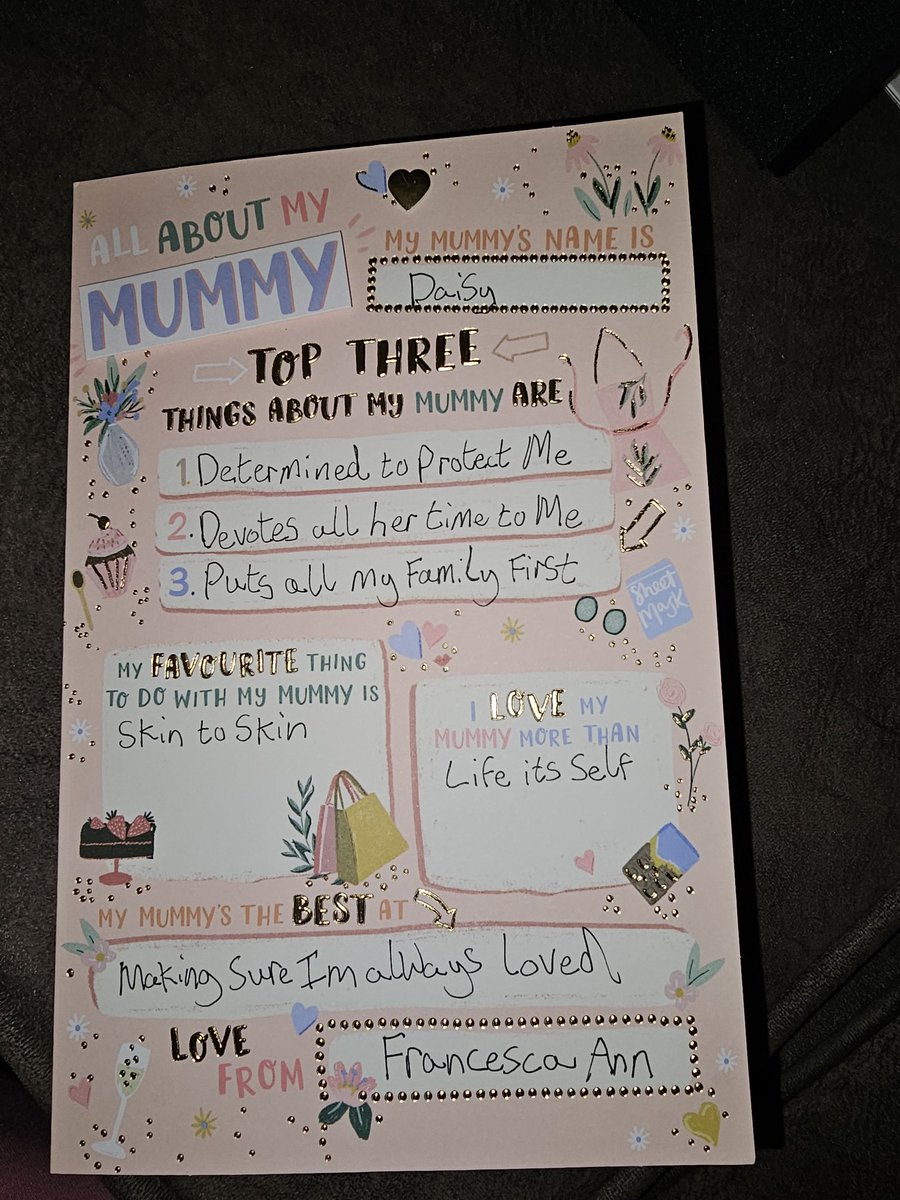 ALL ABOUT MY
MUMMY
MY MUMMY'S NAME IS
Daisy
TOP THREE
THINGS ABOUT MY MUMMY ARE
1. Determined to Protect Me
2. Devotes all her time to Me
3. Puts all my Family First
Sheet
Mask
MY FAVOURITE THING
TO DO WITH MY MUMMY IS
Skin to Skin
I LOVE MY
MUMMY MORE THAN
Life its Self
MY MUMMY'S THE BEST AT
Making Sure Im always loved
LOVE
FROM
Francesca Ann